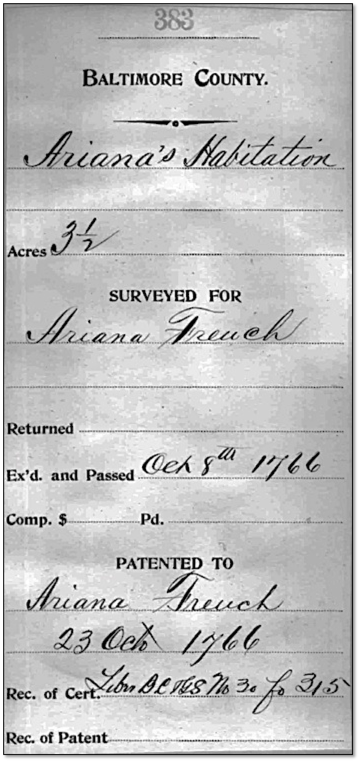 383
BALTIMORE COUNTY.
Ariana's Habitation
Acres 3½
SURVEYED FOR
Ariana French
Returned
Ex'd. and Passed Oct 8th 1766
Comp. $ Pd.
PATENTED TO
Ariana French
23 Oct 1766
Rec. of Cert. Liber B C & G S No 30 fo 315
Rec. of Patent